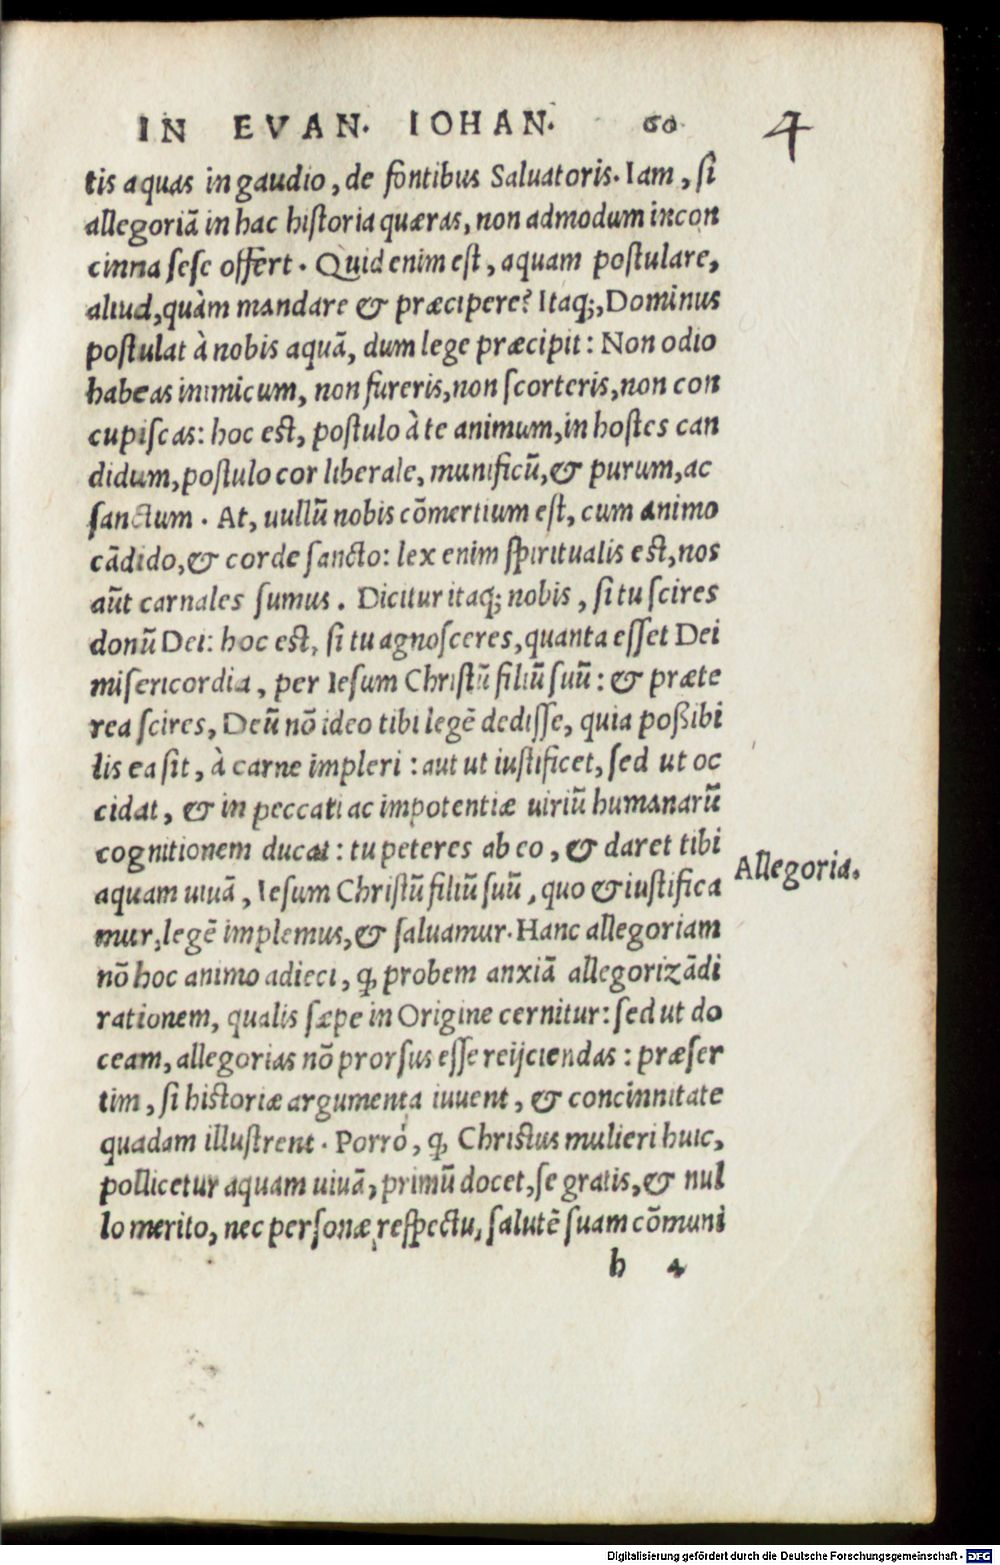 IN EVAN. IOHAN. 60 4
tis aquas in gaudio, de fontibus Saluatoris. Iam, si
allegoriā in hac historia quæras, non admodum incon
cinna sese offert. Quid enim est, aquam postulare,
aliud, quàm mandare & præcipere? Itaq;, Dominus
postulat à nobis aquā, dum lege præcipit: Non odio
habeas inimicum, non fureris, non scorteris, non con
cupiscas: hoc est, postulo à te animum, in hostes can
didum, postulo cor liberale, munificū, & purum, ac
sanctum. At, uullū nobis cōmertium est, cum animo
cādido, & corde sancto: lex enim spiritualis est, nos
aūt carnales sumus. Dicitur itaq; nobis, si tu scires
donū Dei: hoc est, si tu agnosceres, quanta esset Dei
misericordia, per Iesum Christū filiū suū: & præte
rea scires, Deū nō ideo tibi legē dedisse, quia poßibi
lis ea sit, à carne impleri: aut ut iustificet, sed ut oc
cidat, & in peccati ac impotentiæ uiriū humanarū
cognitionem ducat: tu peteres ab eo, & daret tibi
aquam uiuā, Iesum Christū filiū suū, quo & iustifica
mur, legē implemus, & saluamur. Hanc allegoriam
Allegoria.
nō hoc animo adieci, ꝙ probem anxiā allegorizādi
rationem, qualis sæpe in Origine cernitur: sed ut do
ceam, allegorias nō prorsus esse reijciendas: præser
tim, si historiæ argumenta iuuent, & concinnitate
quadam illustrent. Porrò, ꝙ Christus mulieri huic,
pollicetur aquam uiuā, primū docet, se gratis, & nul
lo merito, nec personæ respectu, salutē suam cōmuni
h 4
Digitalisierung gefördert durch die Deutsche Forschungsgemeinschaft - DFG